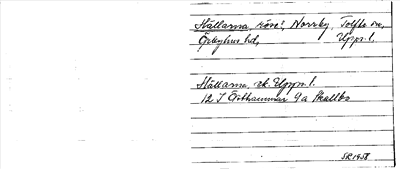 Hällarna, röse?, Norrby, Tolfta sn,
Örbyhus hd, Upps. l.
Hällarna, ek. Upps. l.
12 I Östhammar 9a Skallbo
SR 1958